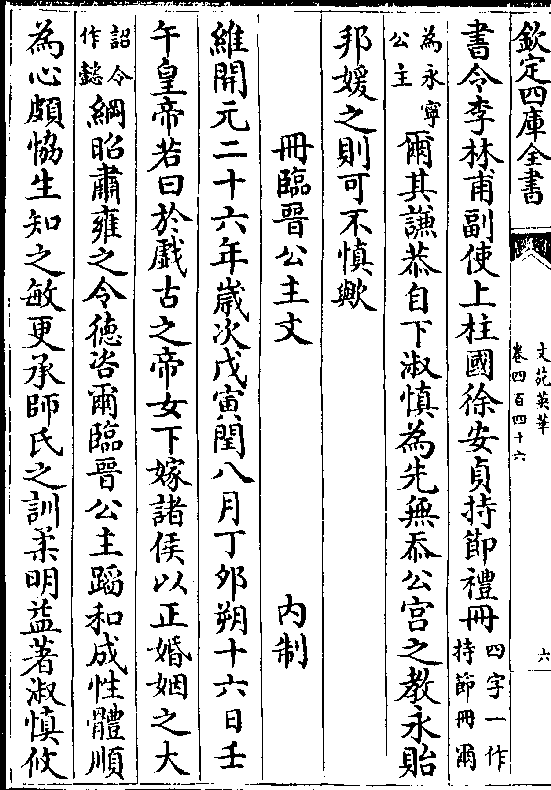 欽定四庫全書
文苑英華
卷四百四十六
六
書令李林甫副使上柱國徐安貞持節禮冊四字一作持節冊爾
為永寧公主爾其謙恭自下淑慎為先無忝公宮之教永貽
邦媛之則可不慎歟
冊臨晉公主文 內制
維開元二十六年歲次戊寅閏八月丁夘朔十六日壬
午皇帝若曰於戲古之帝女下嫁諸侯以正婚姻之大
詔令作懿綱昭肅雍之令德咨爾臨晉公主蹈和成性體順
為心頗恊生知之敏更承師氏之訓柔明益著淑慎攸